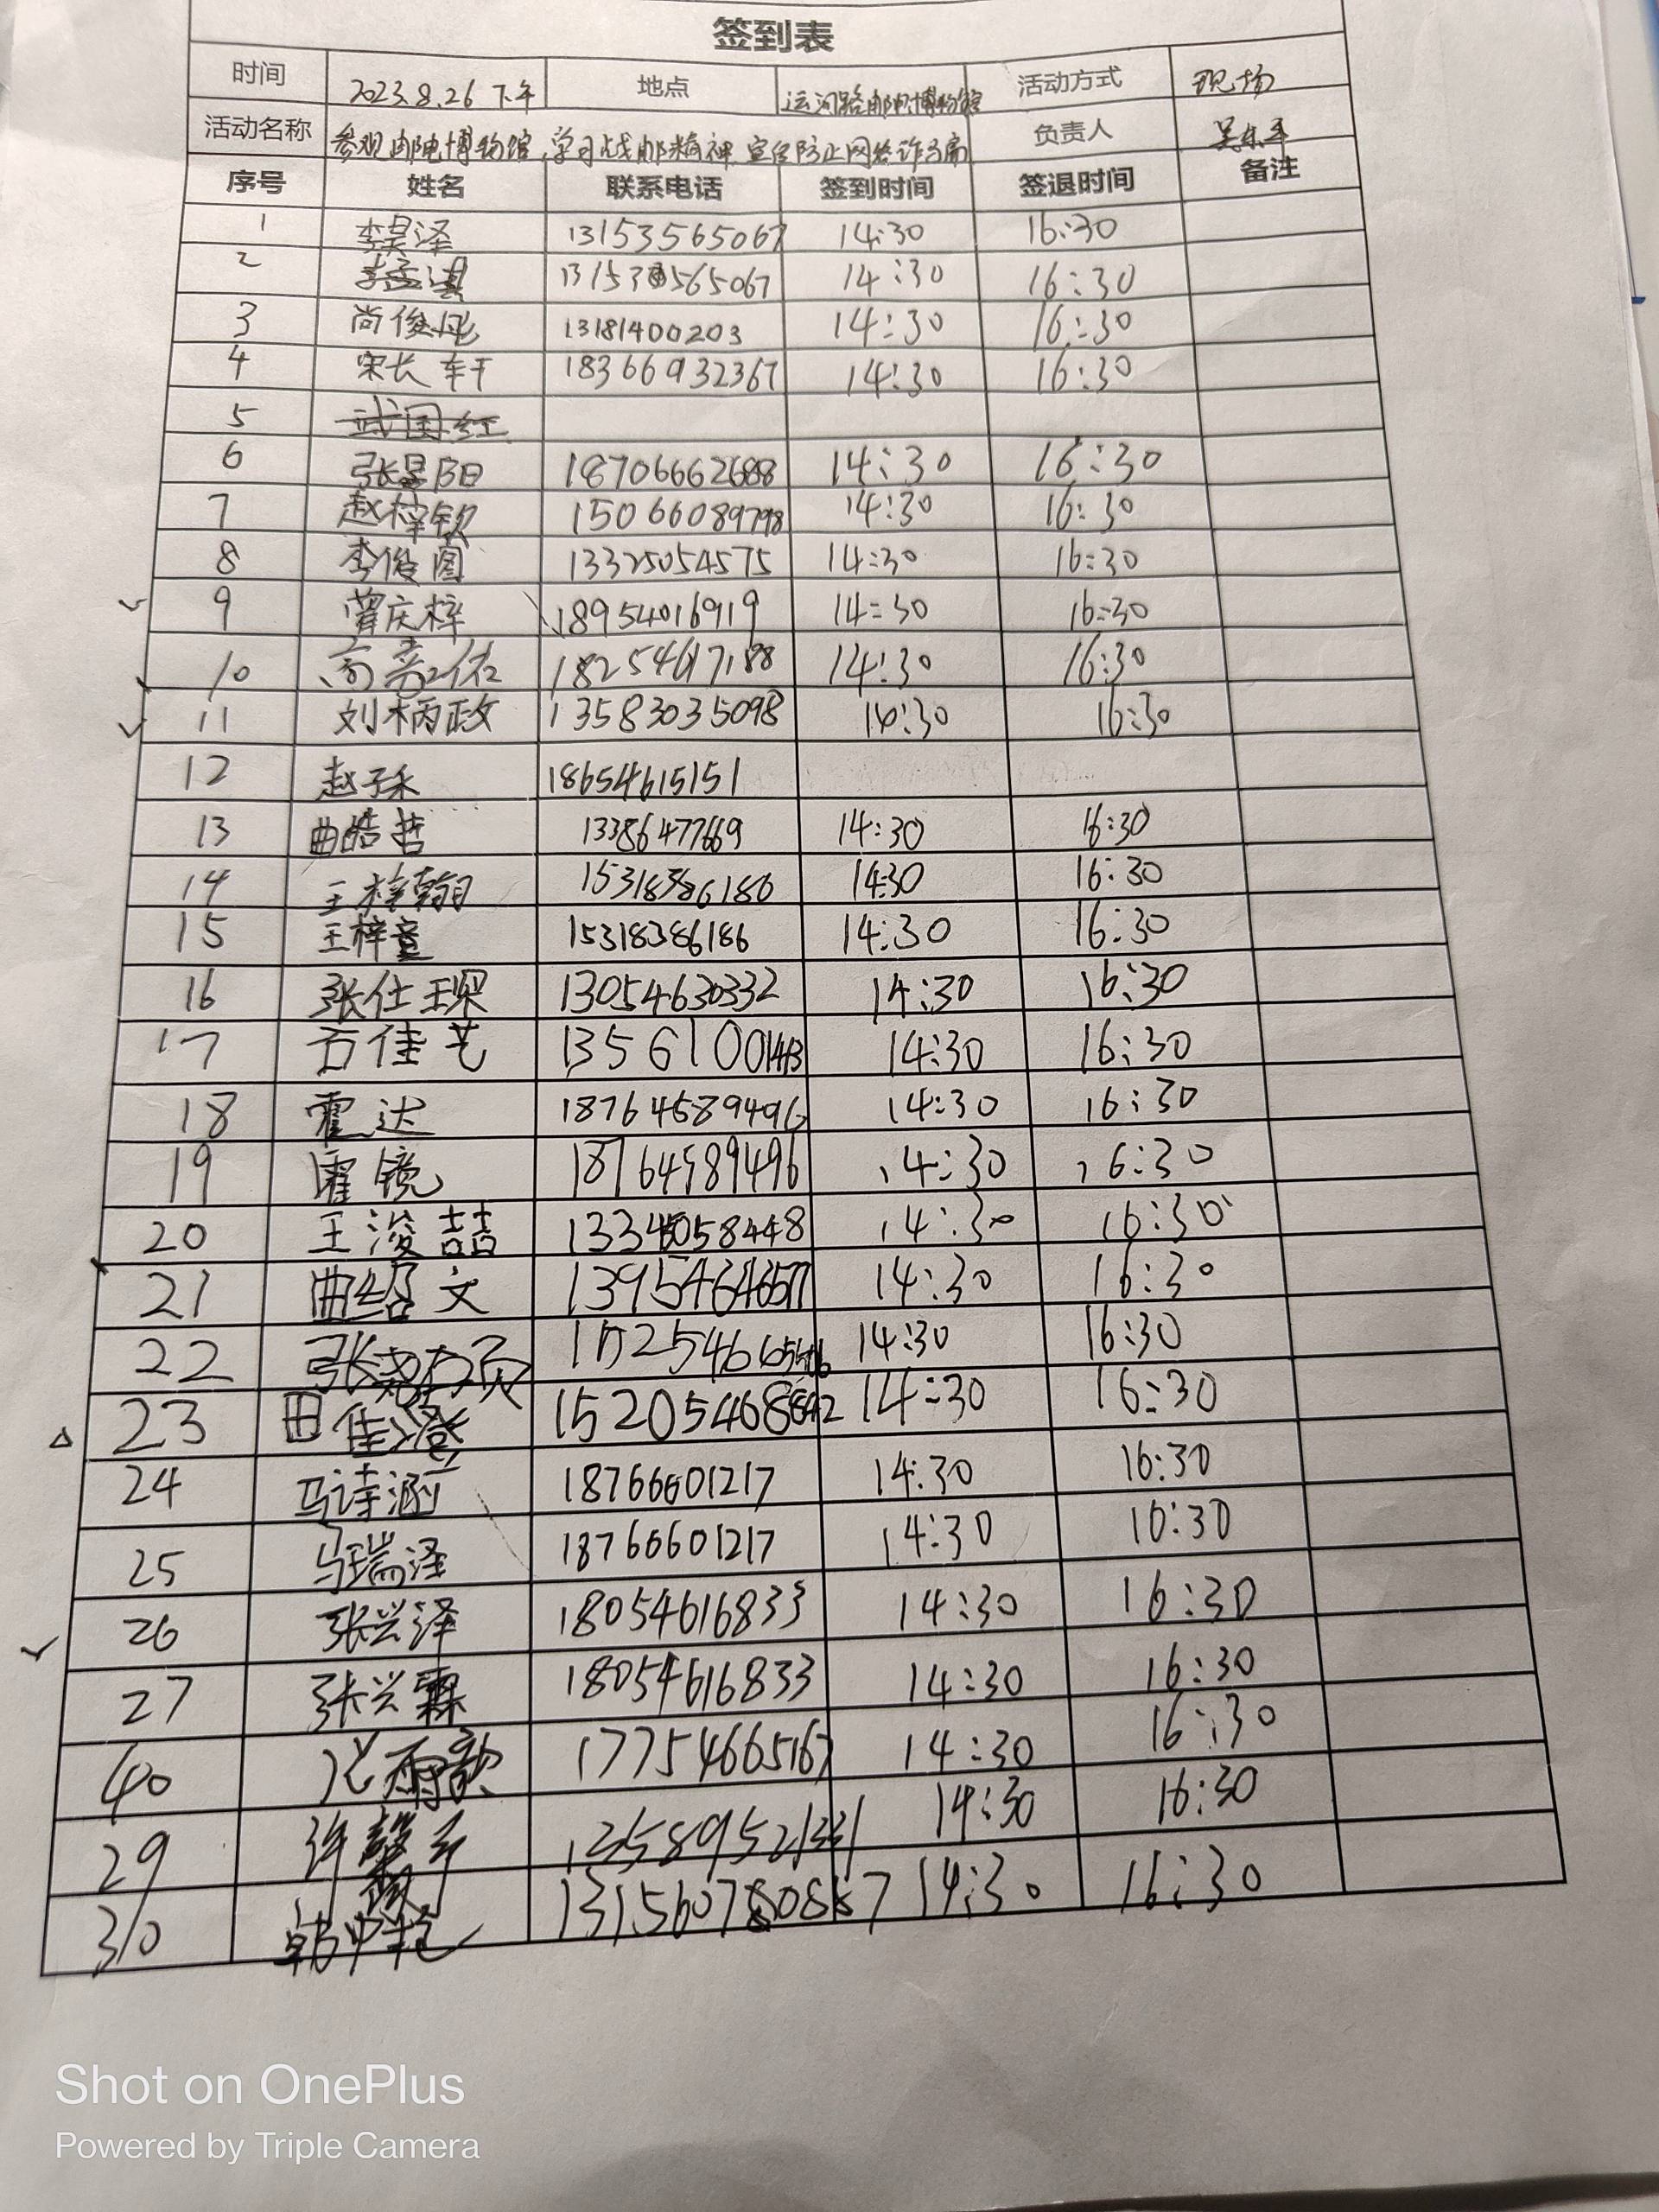 签到表
时间 2023.8.26 下午 地点 运河路邮电博物馆 活动方式 现场
活动名称 参观邮电博物馆,学习战邮精神,宣传防止网络诈骗 负责人
序号 姓名 联系电话 签到时间 签退时间 备注
1 李昊泽 13153565067 14:30 16:30
2 14:30 16:30
3 尚俊 13181400203 14:30 16:30
4 宋长轩 18366932367 14:30 16:30
5 武国红
6 张昱阳 18706662688 14:30 16:30
7 赵梓钦 15066089798 14:30 16:30
8 李俊阁 13325054575 14:30 16:30
9 庆梓 18954016919 14:30 16:30
10 高 佑 14:30 16:30
11 刘炳政 13583035098 14:30 16:30
12 赵子禾 18654615151
13 曲皓哲 13386477669 14:30 16:30
14 王梓翰 14:30 16:30
15 王梓萱 15318386186 14:30 16:30
16 张仕琛 13054630332 14:30 16:30
17 佳艺 14:30 16:30
18 霍达 18764589496 14:30 16:30
19 霍镜 18764589496 14:30 16:30
20 王浚喆 14:30 16:30
21 曲绍文 14:30 16:30
22 张 14:30 16:30
23 田佳澄 14:30 16:30
24 马诗涵 18766601217 14:30 16:30
25 马瑞泽 18766601217 14:30 16:30
26 张兴泽 18054616833 14:30 16:30
27 张兴霖 18054616833 14:30 16:30
40 雨歌 17754665167 14:30 16:30
29 许馨予 14:30 16:30
30 韩 14:30 16:30
Shot on OnePlus
Powered by Triple Camera